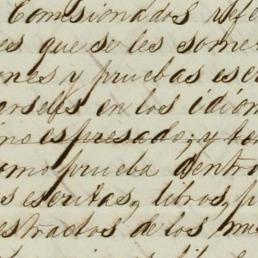 Comisionados refe
es que se les somet
ones y pruebas escr
erseles en los idiom
no espresado; y ten
omo prueba dentro
s escritas, libros, p
estractos de los mis